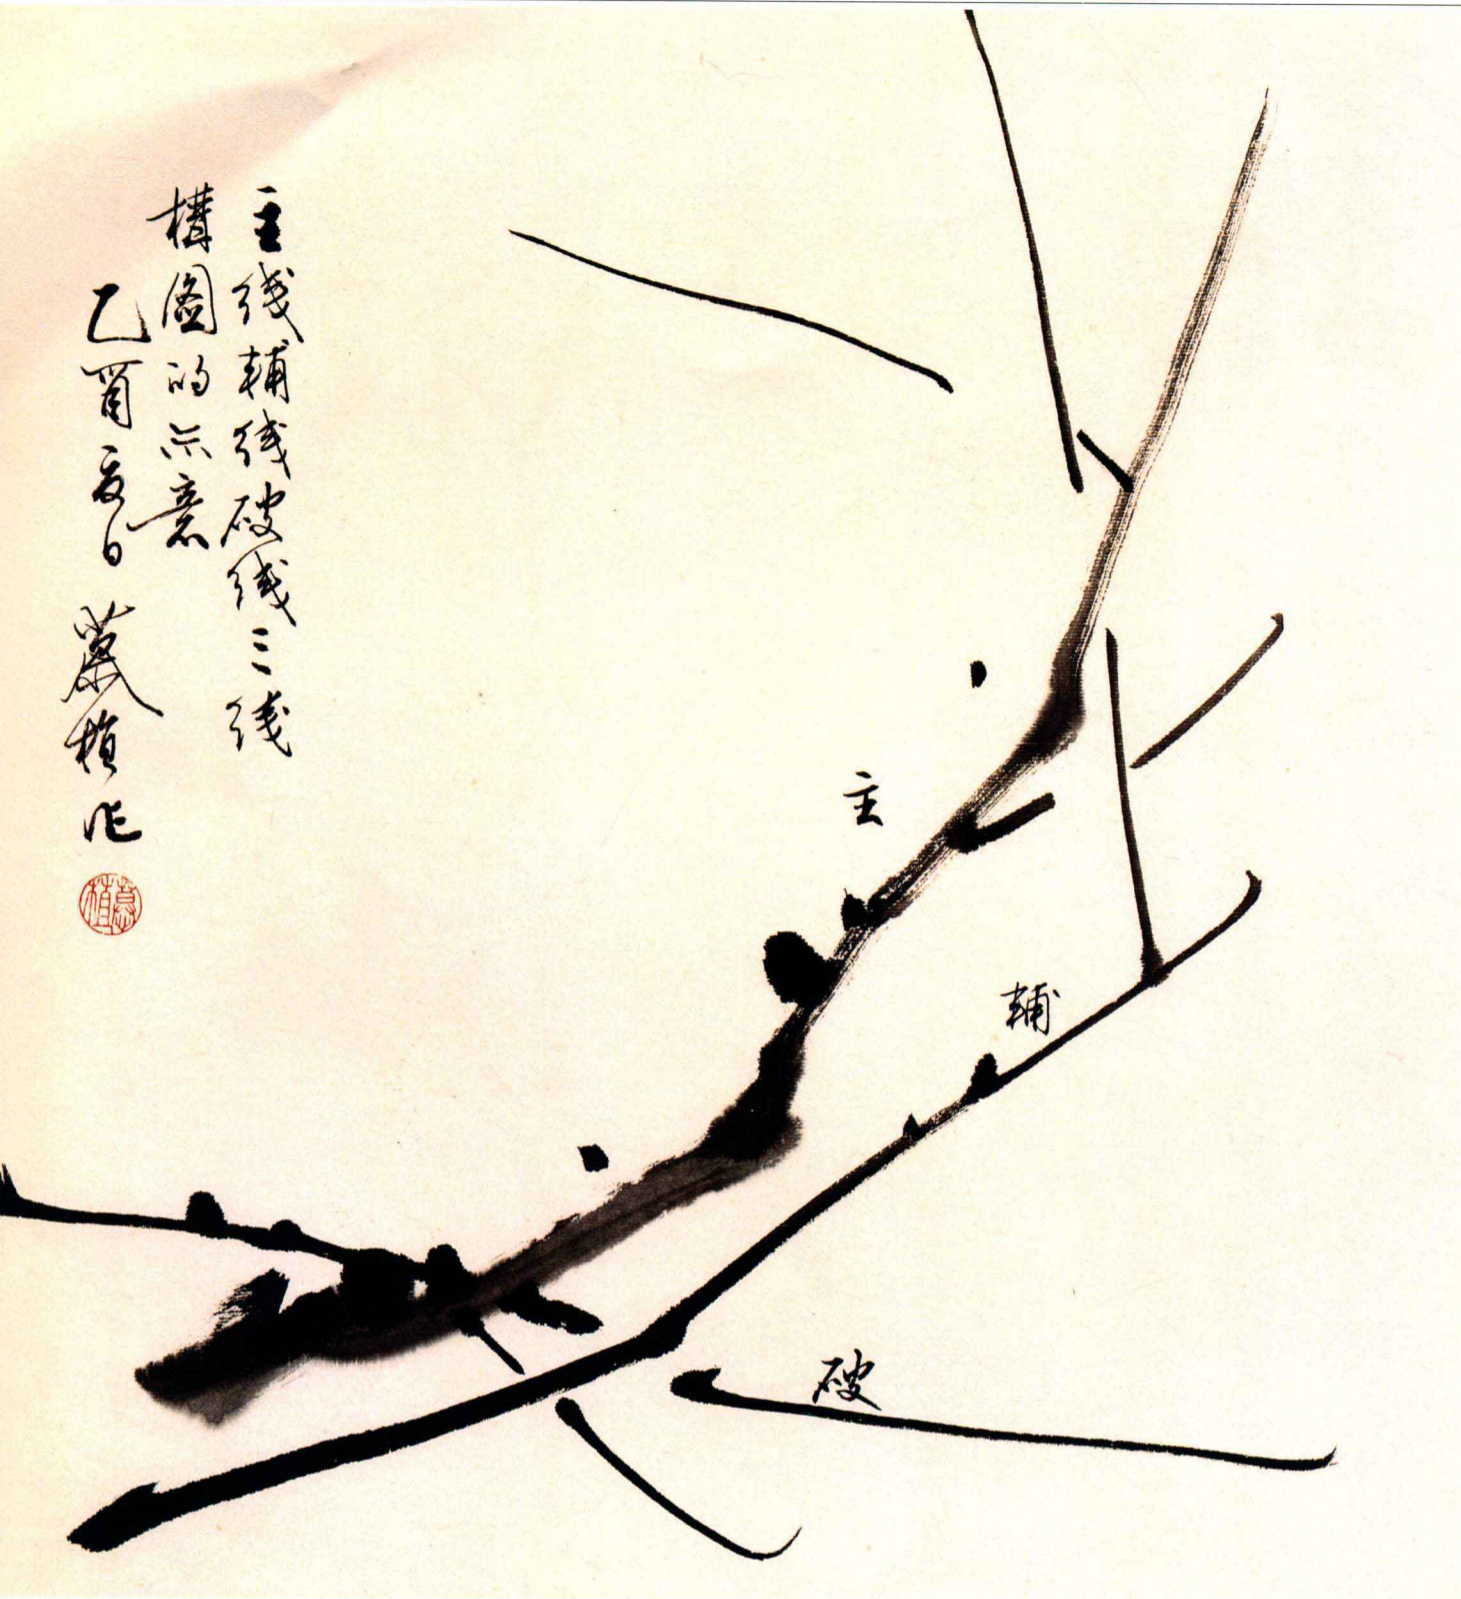 主线輔线破线三线
構图的示意
乙酉夏日 慕植作
慕植
主
輔
破